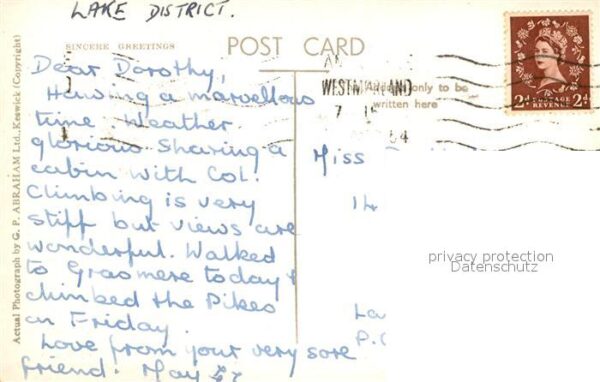 LAKE DISTRICT.
SINCERE GREETINGS
POST CARD
Dear Dorothy,
Having a marvellous
time. Weather
glorious sharing a
cabin with Col.
Climbing is very
stiff but views are
wonderful. Walked
to Grasmere today &
climbed the Pikes
on Friday.
Love from your very sore
friend. May
Actual Photograph by G. P. ABRAHAM Ltd., Keswick (Copyright)
WESTMORLAND
only to be
written here
2d POSTAGE REVENUE 2d
Miss
14
La
P.
privacy protection
Datenschutz